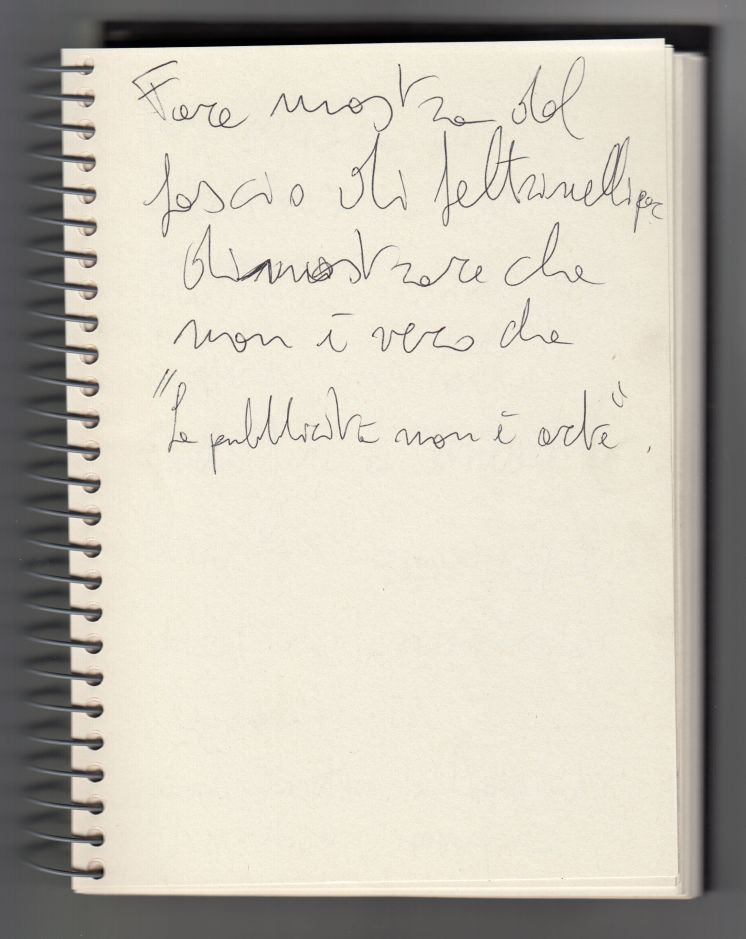 Fare mostra del
fascio di feltrinelli per
dimostrare che
non è vero che
"La pubblicità non è arte".